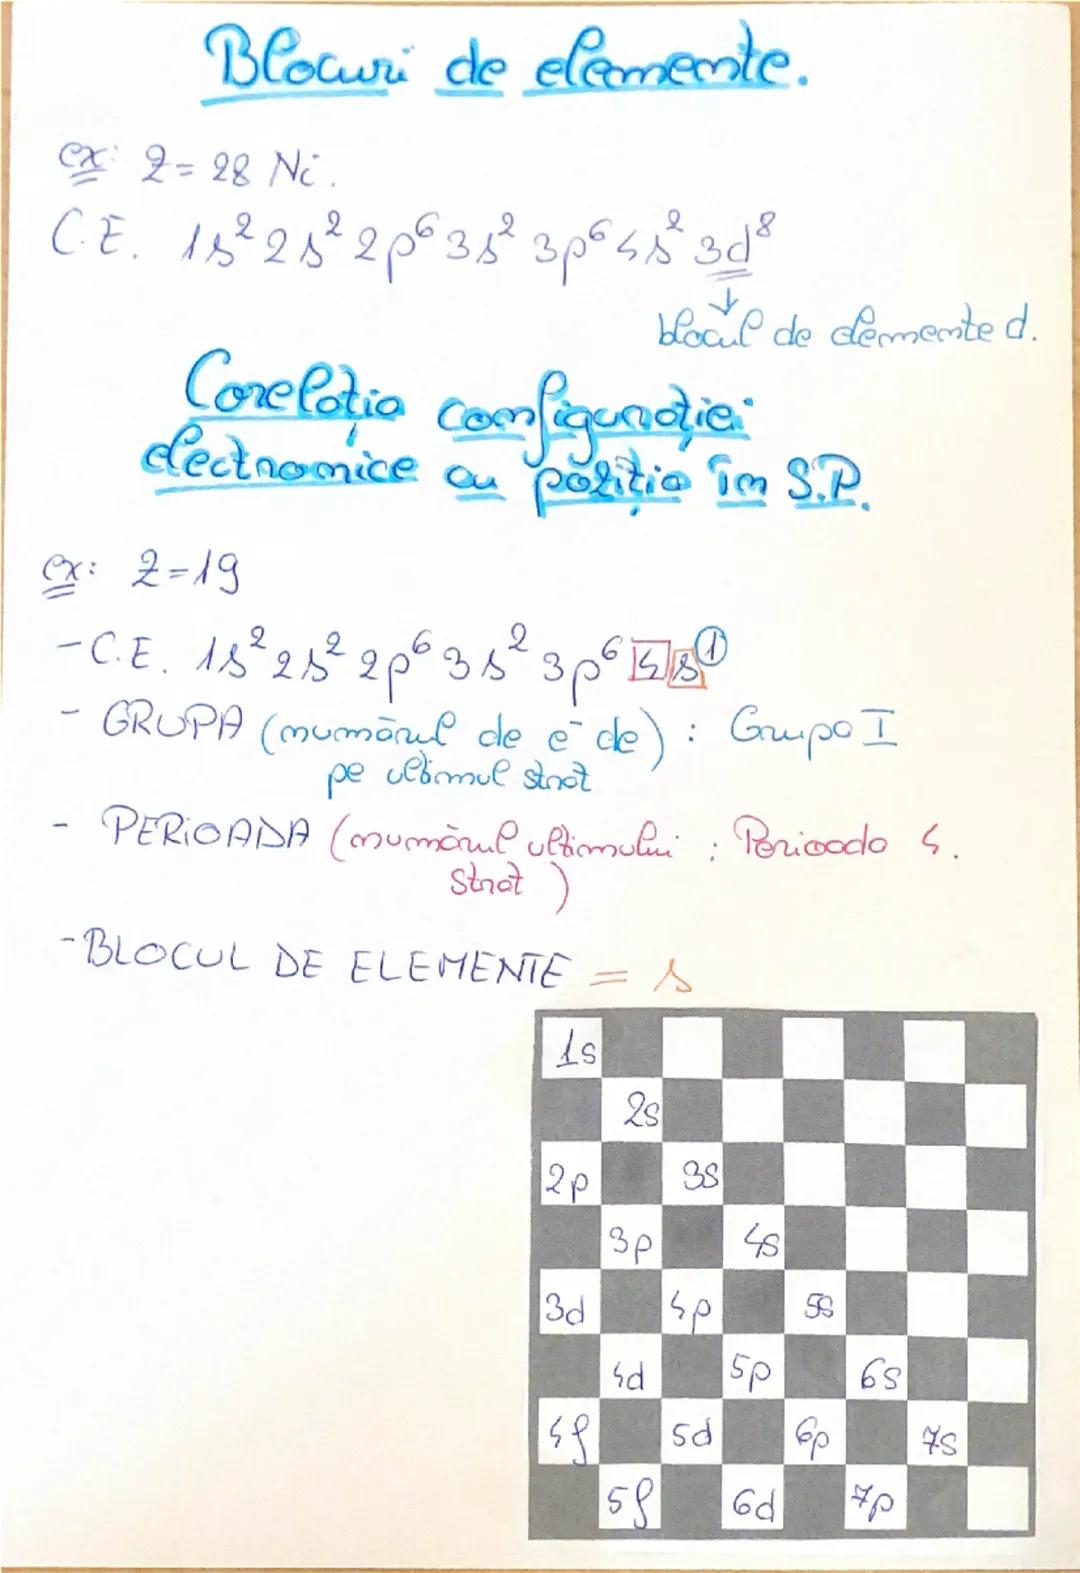 Blocuri de elemente.
ex: Z = 28 Ni.
C.E. 1s² 2s² 2p⁶ 3s² 3p⁶ 4s² 3d⁸
↓
blocul de elemente d.
Corelația configurației
electronice cu poziția în S.P.
ex: Z=19
- C.E. 1s² 2s² 2p⁶ 3s² 3p⁶ 4s¹
- GRUPA (numărul de e⁻ de) : Grupa I
pe ultimul strat
- PERIOADA (numărul ultimului : Perioada 4.
strat)
- BLOCUL DE ELEMENTE = s
1s
2s
2p 3s
3p 4s
3d 4p 5s
4d 5p 6s
4f 5d 6p 7s
5f 6d 7p